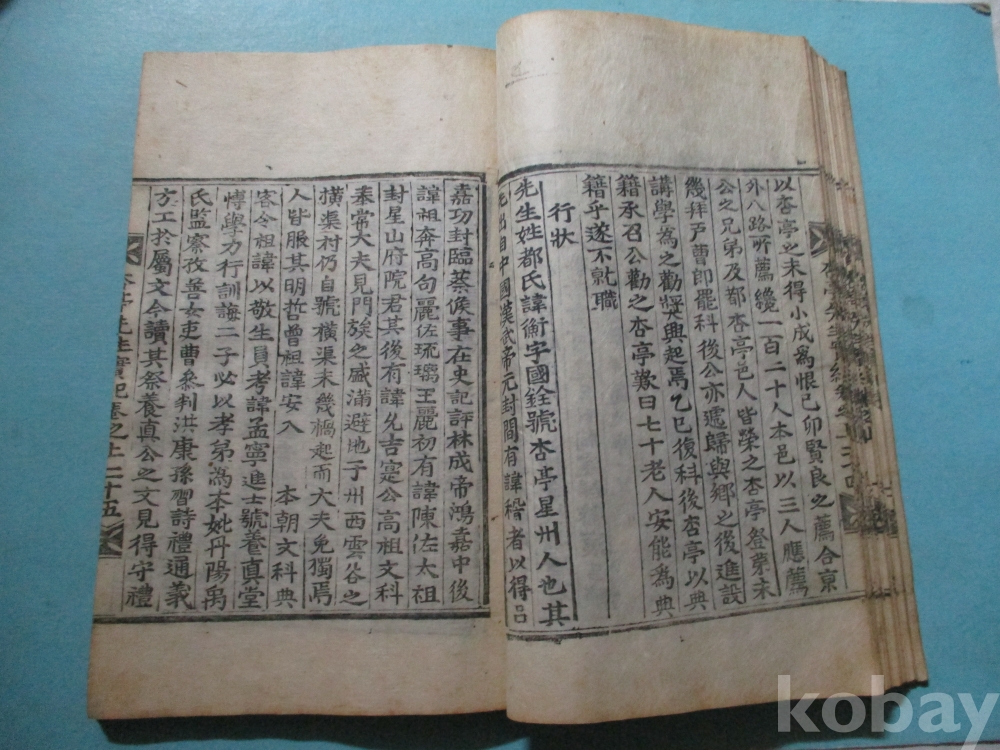 以杏亭之未得小成爲恨已卯賢良之薦合京
外八路所薦纔一百二十人本邑以三人應薦
公之兄弟及都杏亭邑人皆榮之杏亭登第未
幾拜戶曹郎罷科後公亦遞歸與鄉之後進設
講學爲之勸奬興起焉乙巳復科後杏亭以典
籍承召公勸之杏亭歎曰七十老人安能爲典
籍乎遂不就職
行狀
先生姓都氏諱衡字國銓號杏亭星州人也其
先出自中國漢武帝元封間有諱稽者以得呂
嘉功封臨蔡侯事在史記評林成帝鴻嘉中後
諱祖奔高句麗佐琉璃王麗初有諱陳佐太祖
封星山府院君其後有諱允吉寔公高祖文科
奉常大夫見門族之盛滿避地于州西雲谷之
橫渠村仍自號橫渠未幾禍起而大夫免獨焉
人皆服其明哲曾祖諱安入 本朝文科典
客令祖諱以敬生員考諱孟寧進士號養真堂
博學力行訓誨二子必以孝弟爲本妣丹陽禹
氏監察孜善女吏曹參判洪康孫習詩禮通義
方工於屬文今讀其祭養真公之文見得守禮
杏亭先生實紀卷之上 二十五
kobay